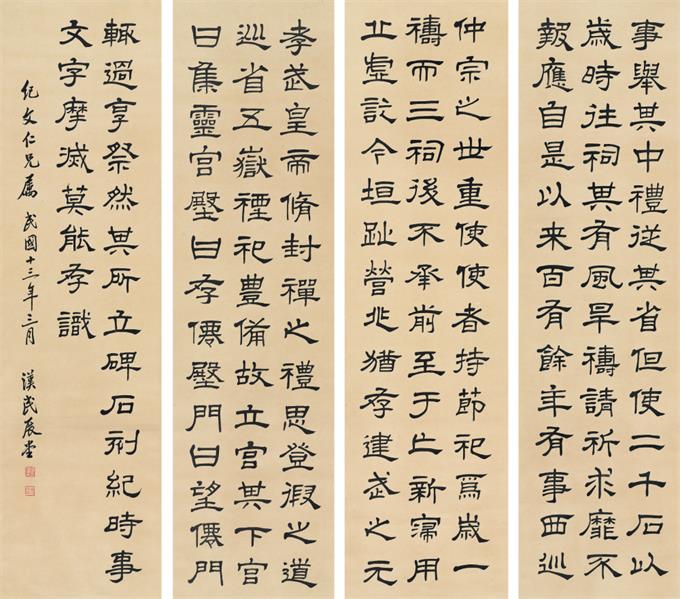 事舉其中禮從其省但使二千石以
歲時往祠其有風旱禱請祈求靡不
報應自是以来百有餘年有事西巡
仲宗之世重使使者持節祀焉歲一
禱而三祠後不承前至于亡新寖用
丘虛訖今垣趾營兆猶存建武之元
孝武皇帝脩封禪之禮思登徦之道
巡省五嶽禋祀豐備故立宮其下宮
曰集靈宮殿曰存僊殿門曰望僊門
輒過享祭然其所立碑石刻紀時事
文字摩滅莫能存識
紀文仁兄屬 民國十三年三月 漢民展堂